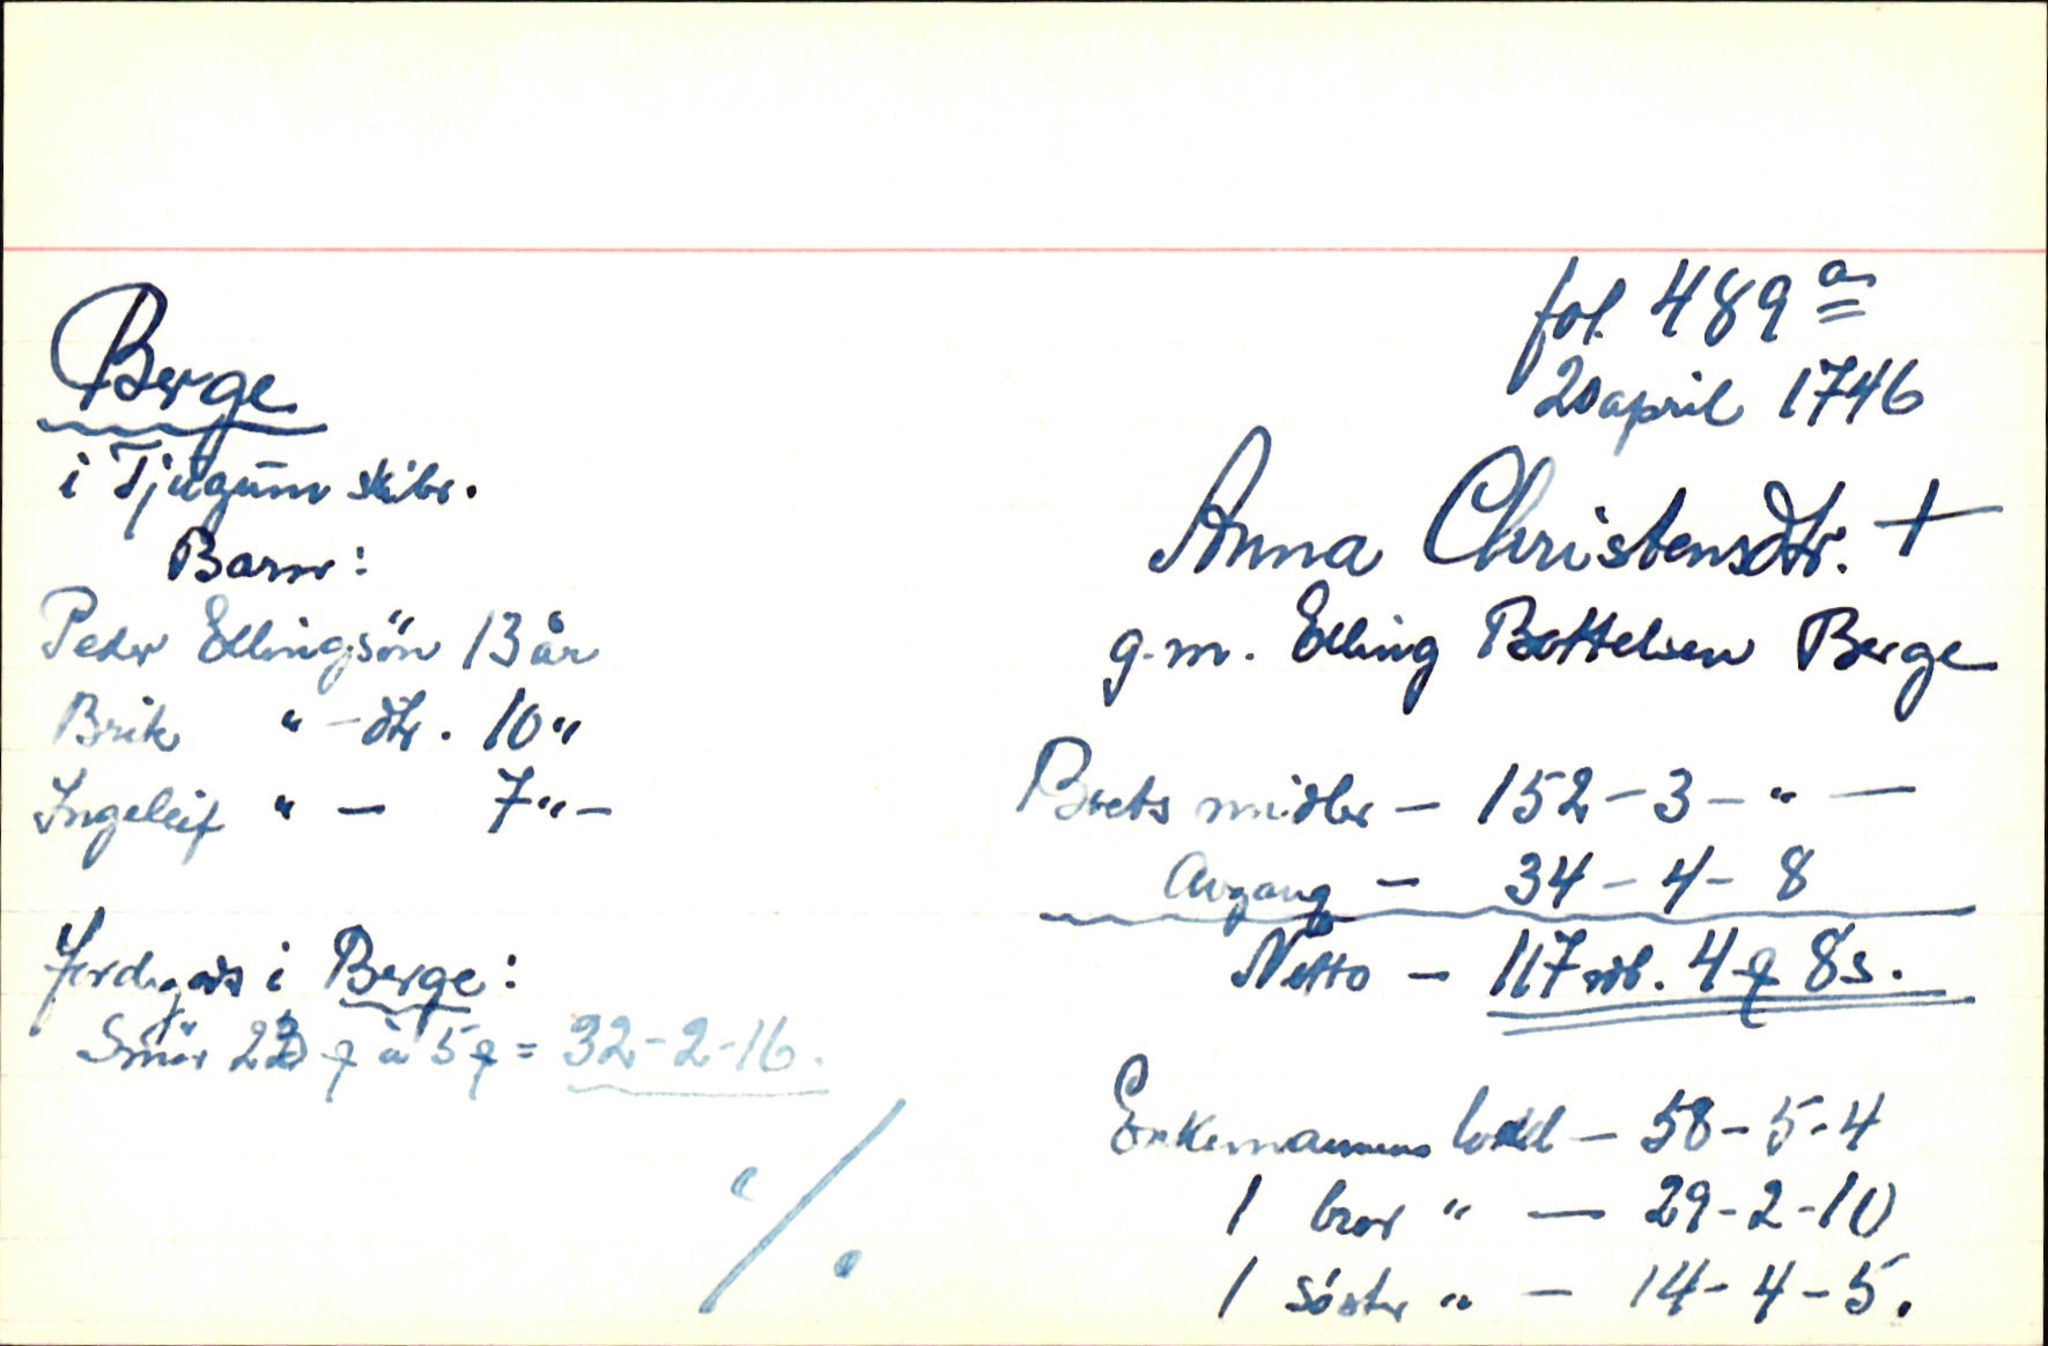 Berge
i Tjugum skibr.
Barn:
Peder Ellingsön 13 år
Brite " - dtr. 10 "
Ingeleif " - 7 " -
Jordegods i Berge:
Smör 22 à 5 = 32-2-16.
·/.
fol. 489 a
20 april 1746
Anna Christensdtr. +
g.m. Elling Bottelsen Berge
Boets midler - 152 - 3 - " -
Avgang - 34 - 4 - 8
Netto - 117 rdl. 4 8 s.
Enkemannens lodd - 58 - 5 - 4
1 bror " - 29 - 2 - 10
1 söster " - 14 - 4 - 5.